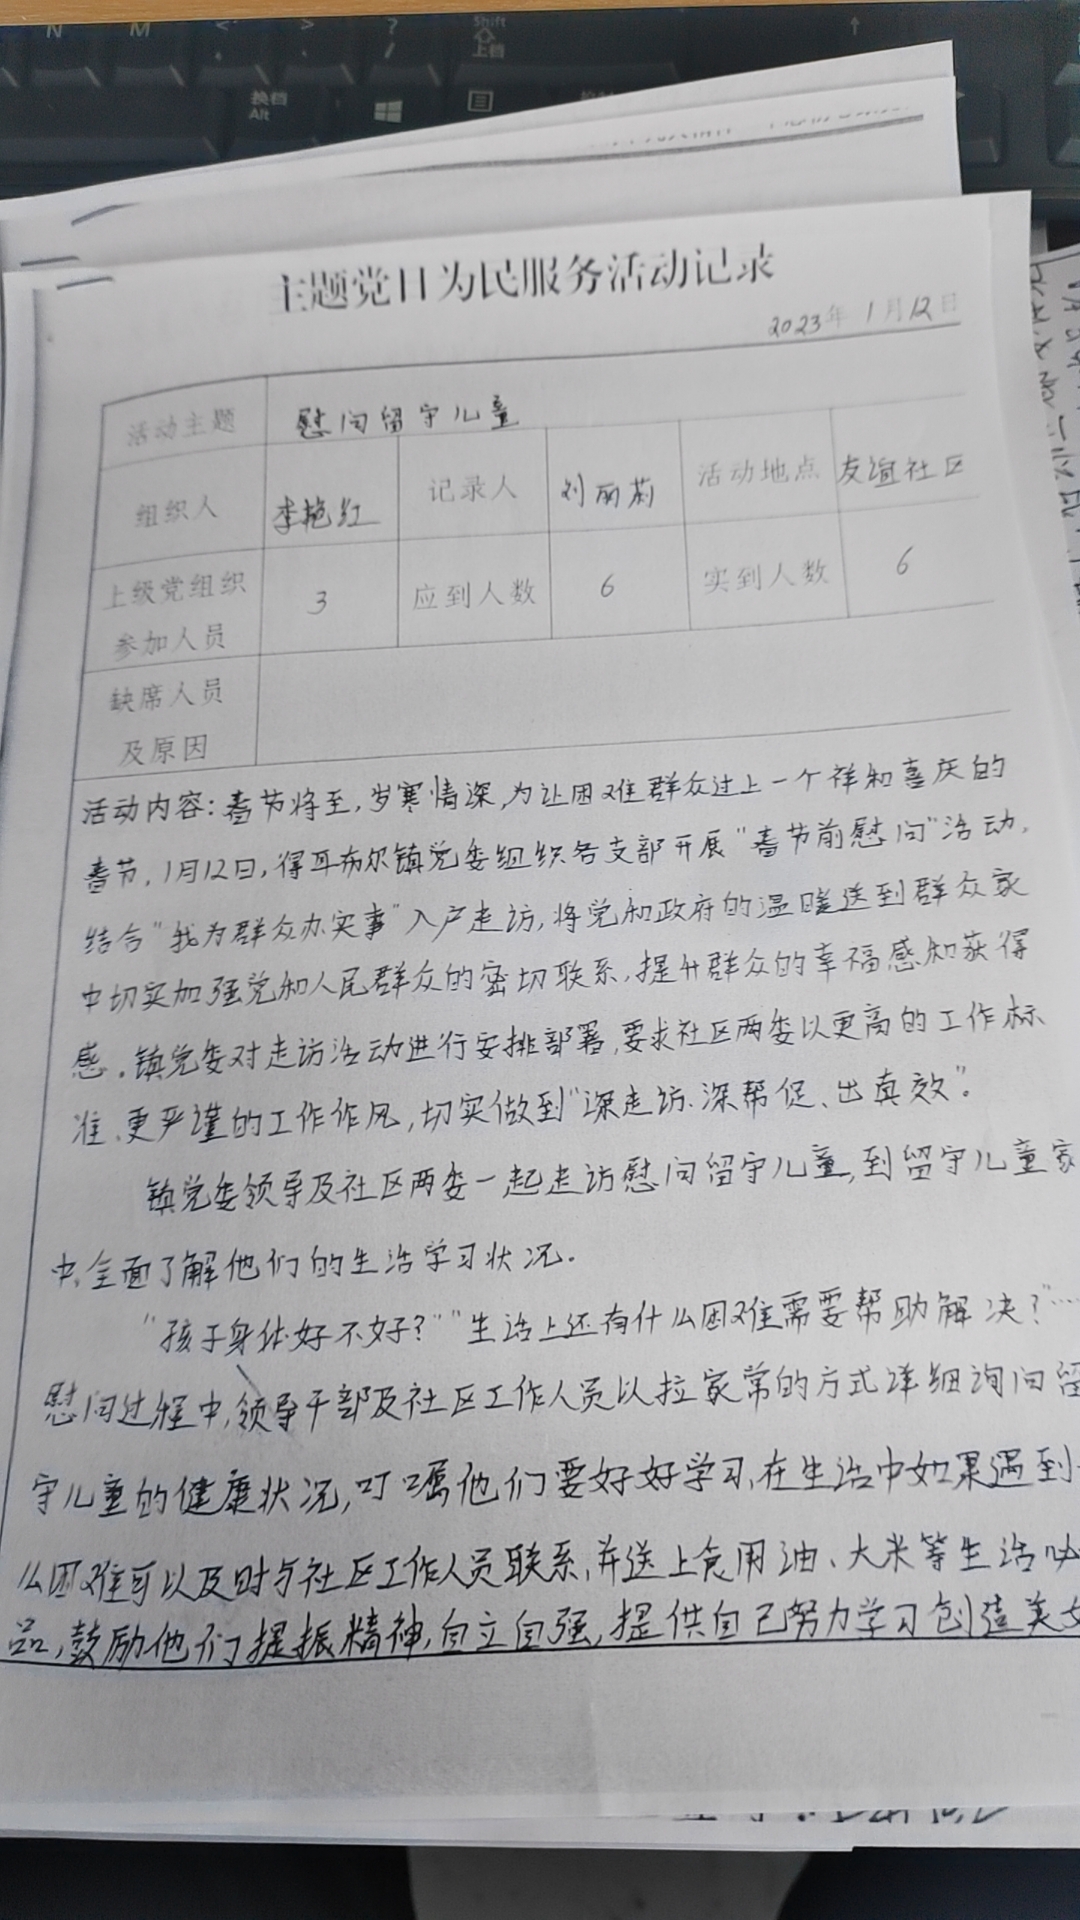 N M < > ?
Shift
上档
换档
Alt
主题党日为民服务活动记录
2023年 1月12日
活动主题 慰问留守儿童
组织人 李艳红 记录人 刘丽莉 活动地点 友谊社区
上级党组织参加人员 3 应到人数 6 实到人数 6
缺席人员
及原因
活动内容：春节将至，岁寒情深，为让困难群众过上一个祥和喜庆的
春节，1月12日，得耳布尔镇党委组织各支部开展“春节前慰问”活动，
结合“我为群众办实事”入户走访，将党和政府的温暖送到群众家
中切实加强党和人民群众的密切联系，提升群众的幸福感和获得
感。镇党委对走访活动进行安排部署，要求社区两委以更高的工作标
准、更严谨的工作作风，切实做到“深走访、深帮促、出真效”。
镇党委领导及社区两委一起走访慰问留守儿童，到留守儿童家
中，全面了解他们的生活学习状况。
“孩子身体好不好？”“生活上还有什么困难需要帮助解决？”……
慰问过程中，领导干部及社区工作人员以拉家常的方式详细询问留
守儿童的健康状况，叮嘱他们要好好学习，在生活中如果遇到
么困难可以及时与社区工作人员联系，并送上食用油、大米等生活必
品，鼓励他们提振精神，自立自强，提供自己努力学习创造美